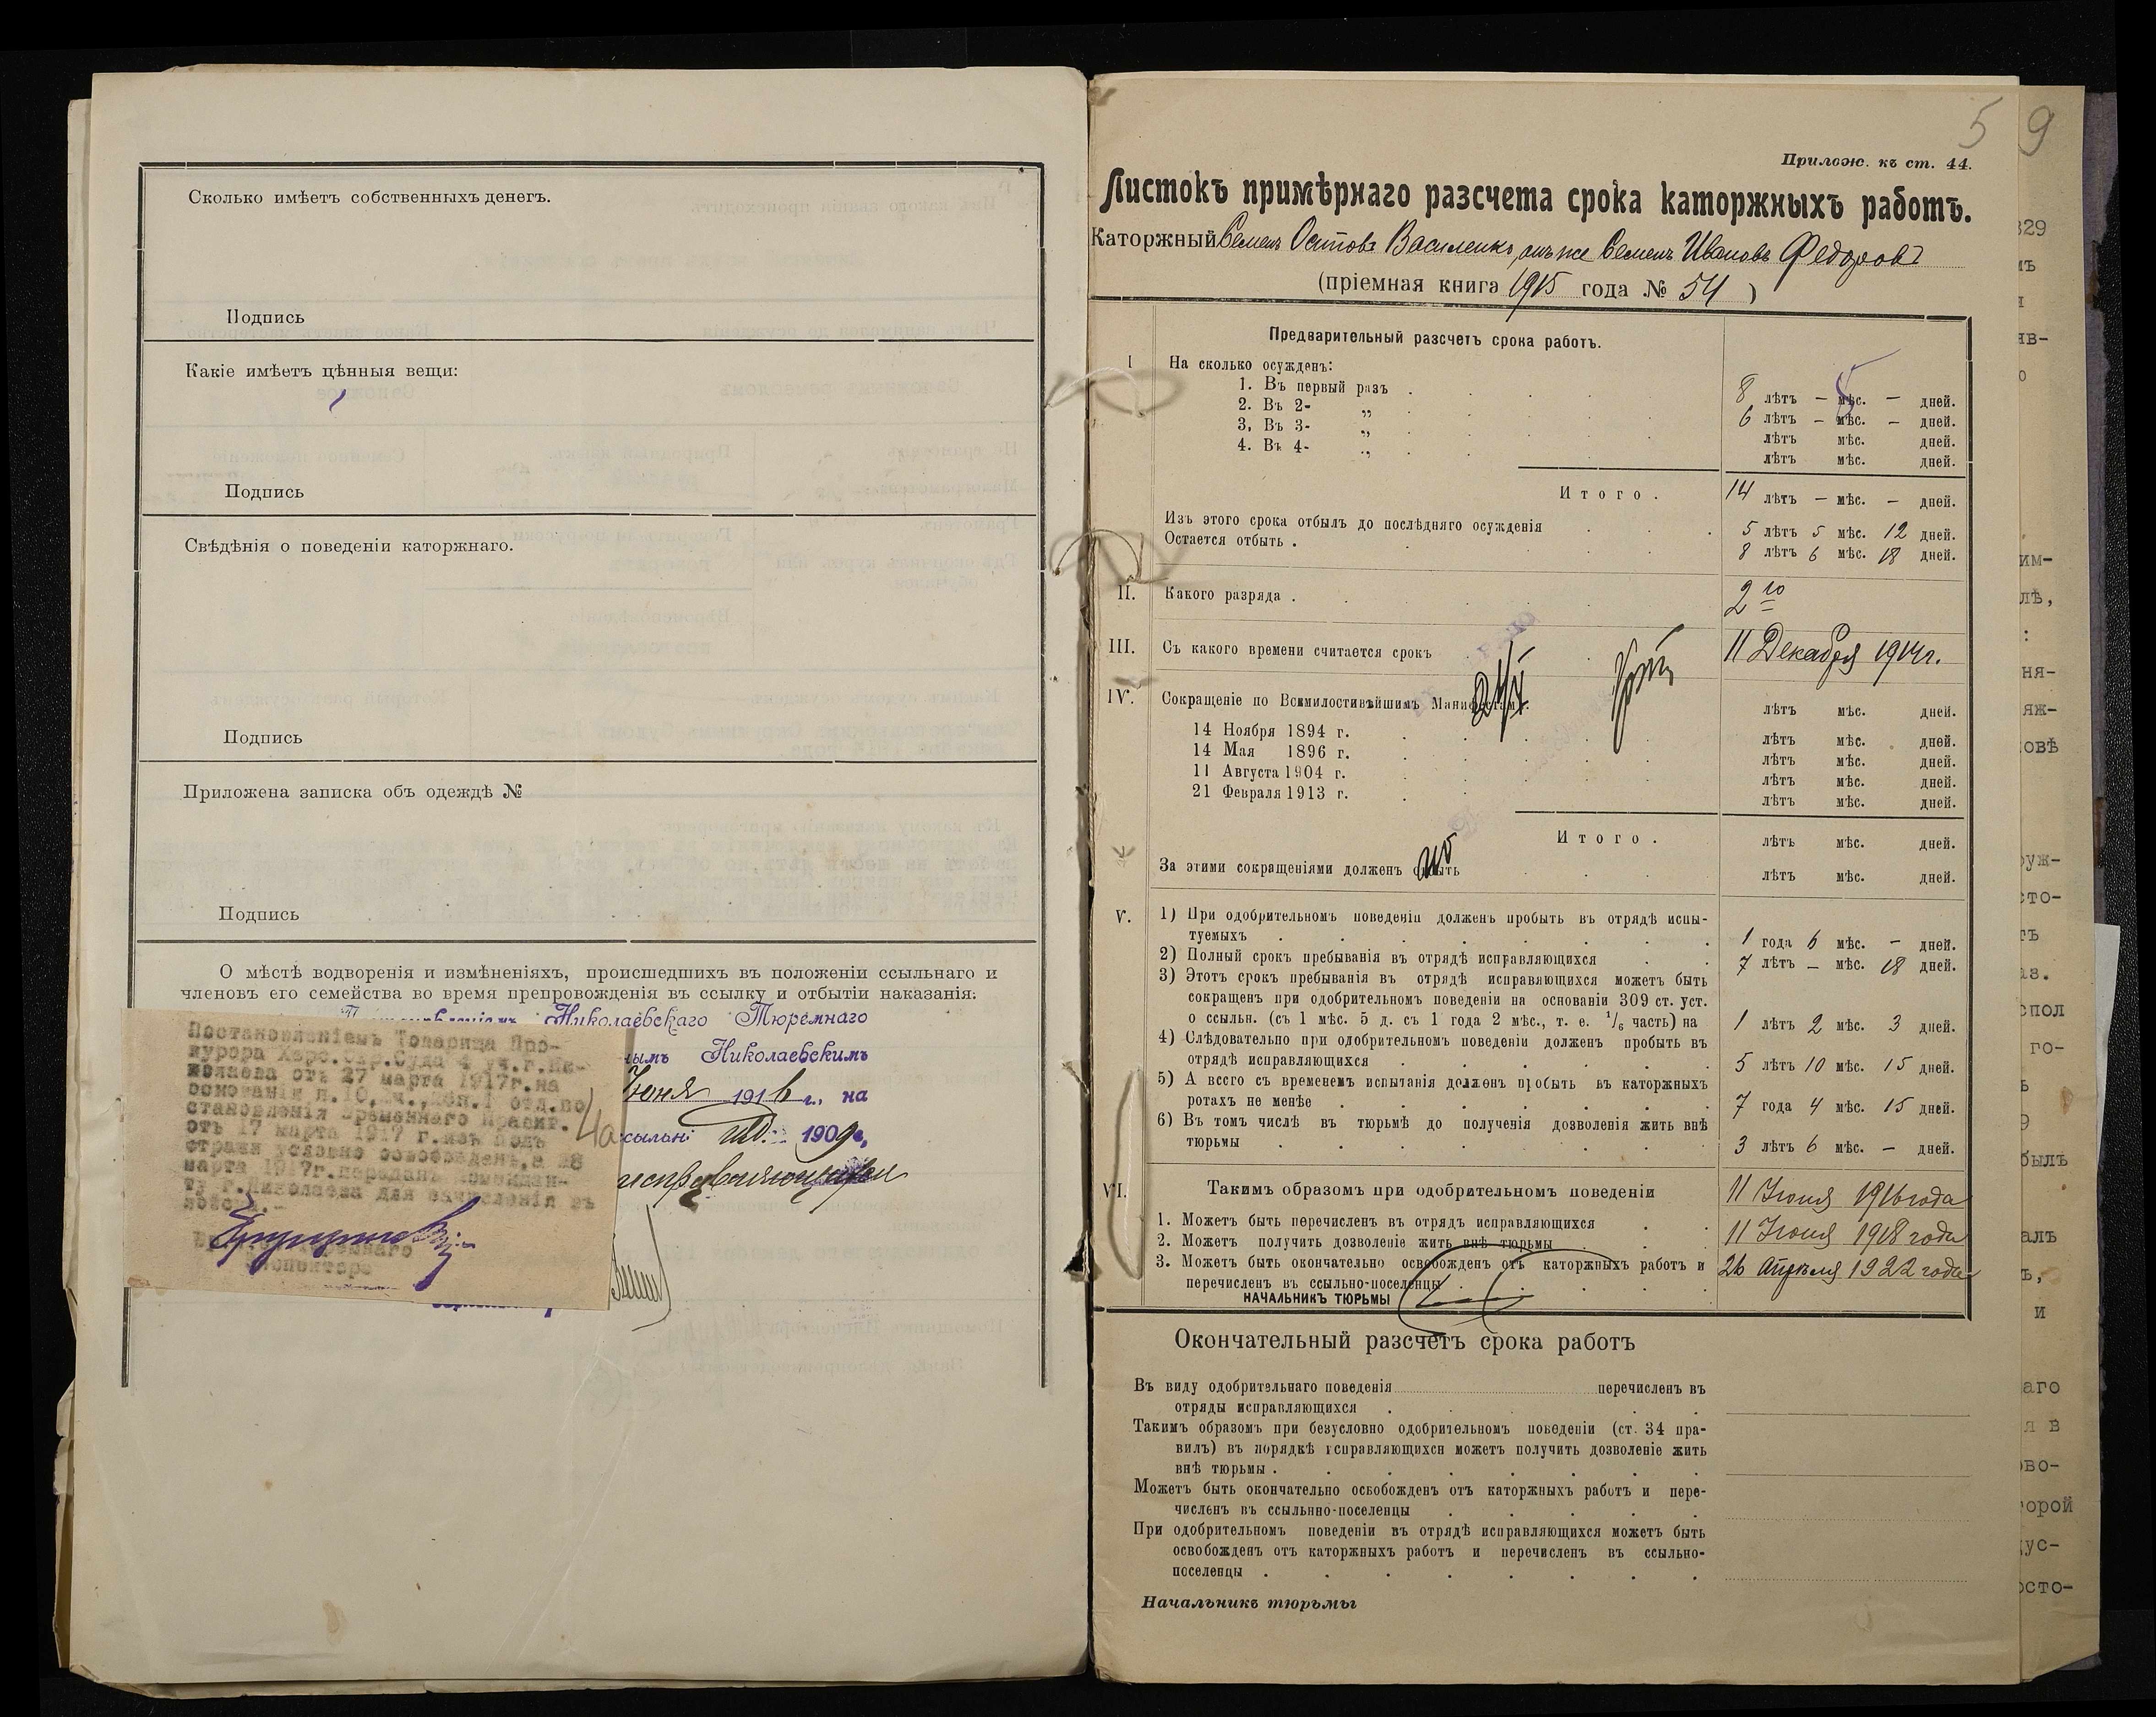 Сколько имѣетъ собственныхъ денегъ.
Подпись
Какіе имѣетъ цѣнныя вещи:
Подпись
Свѣдѣнія о поведеніи каторжнаго.
Подпись
Приложена записка объ одеждѣ №
Подпись
О мѣстѣ водворенія и измѣненіяхъ, происшедшихъ въ положеніи ссыльнаго и
членовъ его семейства во время препровожденія въ ссылку и отбытіи наказанія:
Николаевскаго Тюремнаго
Николаевскимъ
Іюня 1916 г., на
1909 г,
исправляющихся
Постановленіемъ Товарища Про-
курора Херс.Окр.Суда 4 уч.г.Ни-
колаева отъ 27 марта 1917г.на
основаніи п.10, отд.по
становленія Временнаго Правит.
отъ 17 марта 1917 г.изъ подъ
стражи условно освобожденъ,а 28
марта 1917г.переданъ комендан-
ту г.Николаева для зачисленія въ
войска.-
Тюремнаго
Инспектора
4а
5 9
Прилож. къ ст. 44.
Листокъ примѣрнаго разсчета срока каторжныхъ работъ.
Каторжный Семенъ Осиповъ Василенко, онъ же Семенъ Ивановъ Федоровъ
(пріемная книга 1915 года № 54 )
Предварительный разсчетъ срока работъ.
I На сколько осужденъ:
1. Въ первый разъ 8 лѣтъ — мѣс. — дней.
2. Въ 2- „ 6 лѣтъ — мѣс. — дней.
3. Въ 3- „ лѣтъ мѣс. дней.
4. Въ 4- „ лѣтъ мѣс. дней.
Итого. 14 лѣтъ — мѣс. — дней.
Изъ этого срока отбылъ до послѣдняго осужденія 5 лѣтъ 5 мѣс. 12 дней.
Остается отбыть. 8 лѣтъ 6 мѣс. 18 дней.
II. Какого разряда. 2го
III. Съ какого времени считается срокъ 11 Декабря 1914г.
IV. Сокращеніе по Всемилостивѣйшимъ Манифестамъ: лѣтъ мѣс. дней.
14 Ноября 1894 г. лѣтъ мѣс. дней.
14 Мая 1896 г. лѣтъ мѣс. дней.
11 Августа 1904 г. лѣтъ мѣс. дней.
21 Февраля 1913 г. лѣтъ мѣс. дней.
Итого. лѣтъ мѣс. дней.
За этими сокращеніями долженъ отбыть лѣтъ мѣс. дней.
V. 1) При одобрительномъ поведеніи долженъ пробыть въ отрядѣ испы-
туемыхъ 1 года 6 мѣс. — дней.
2) Полный срокъ пребыванія въ отрядѣ исправляющихся 7 лѣтъ — мѣс. 18 дней.
3) Этотъ срокъ пребыванія въ отрядѣ исправляющихся можетъ быть
сокращенъ при одобрительномъ поведеніи на основаніи 309 ст. уст.
о ссыльн. (съ 1 мѣс. 5 д. съ 1 года 2 мѣс., т. е. 1/6 часть) на 1 лѣтъ 2 мѣс. 3 дней.
4) Слѣдовательно при одобрительномъ поведеніи долженъ пробыть въ
отрядѣ исправляющихся 5 лѣтъ 10 мѣс. 15 дней.
5) А всего съ временемъ испытанія долженъ пробыть въ каторжныхъ
ротахъ не менѣе 7 года 4 мѣс. 15 дней.
6) Въ томъ числѣ въ тюрьмѣ до полученія дозволенія жить внѣ
тюрьмы 3 лѣтъ 6 мѣс. — дней.
VI. Такимъ образомъ при одобрительномъ поведеніи
1. Можетъ быть перечисленъ въ отрядъ исправляющихся 11 Іюня 1916 года
2. Можетъ получить дозволеніе жить внѣ тюрьмы 11 Іюня 1918 года
3. Можетъ быть окончательно освобожденъ отъ каторжныхъ работъ и 26 Апрѣля 1922 года
перечисленъ въ ссыльно-поселенцы
НАЧАЛЬНИКЪ ТЮРЬМЫ
Окончательный разсчетъ срока работъ
Въ виду одобрительнаго поведенія перечисленъ въ
отряды исправляющихся
Такимъ образомъ при безусловно одобрительномъ поведеніи (ст. 34 пра-
вилъ) въ порядкѣ исправляющихся можетъ получить дозволеніе жить
внѣ тюрьмы
Можетъ быть окончательно освобожденъ отъ каторжныхъ работъ и пере-
численъ въ ссыльнно-поселенцы
При одобрительномъ поведеніи въ отрядѣ исправляющихся можетъ быть
освобожденъ отъ каторжныхъ работъ и перечисленъ въ ссыльно-
поселенцы
Начальникъ тюрьмы